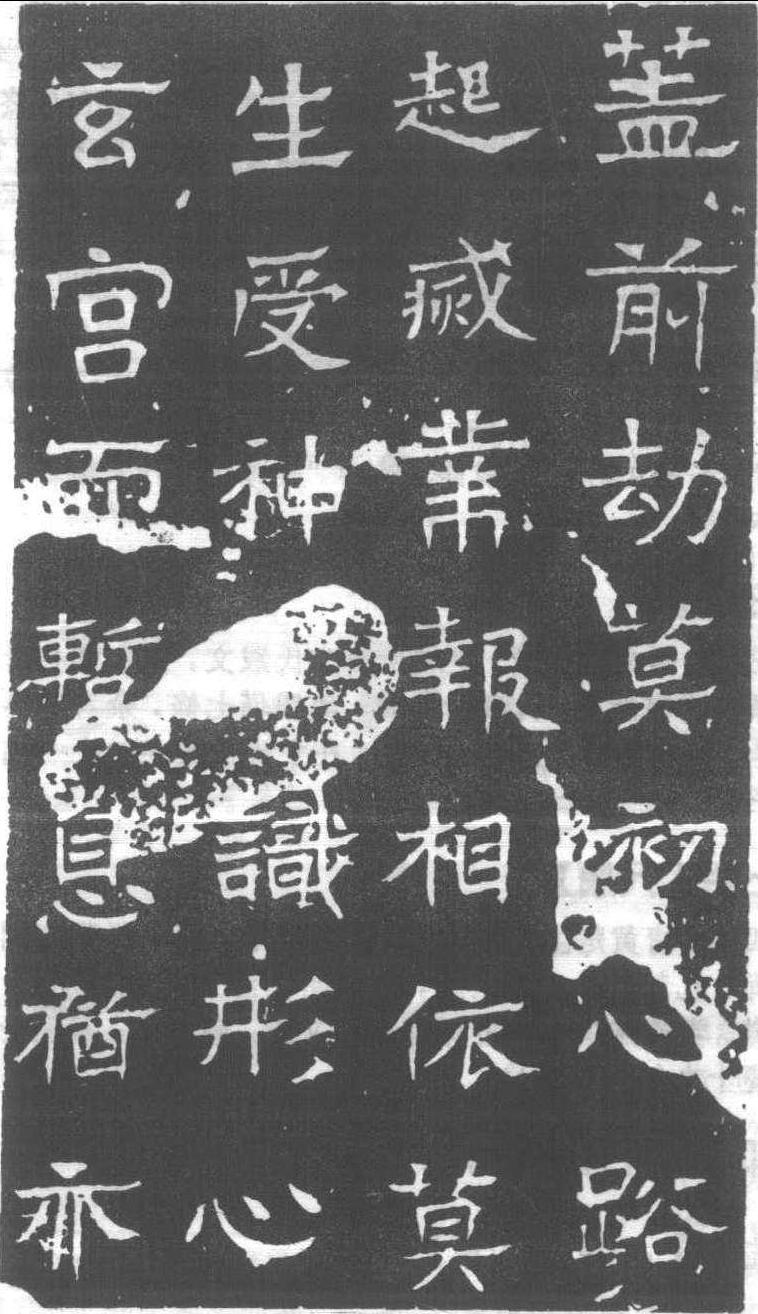 盖前劫莫初心路
起惑業報相依莫
生受神識形心
玄宫而暫息猶亦